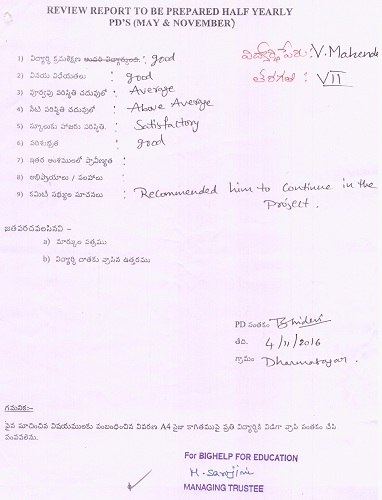 REVIEW REPORT TO BE PREPARED HALF YEARLY
PD'S (MAY & NOVEMBER)
విద్యార్థి పేరు: V. Mahende
తరగతి: VII
1) విద్యార్థి క్రమశిక్షణ : good
2) వినయ విధేయతలు : good
3) పూర్వపు పరిస్థితి చదువులో : Average
4) నేటి పరిస్థితి చదువులో : Above Average
5) స్కూలుకు హాజరు పరిస్థితి. : Satisfactory
6) పరిశుభ్రత : good
7) ఇతర అంశములలో ప్రావీణ్యత :
8) అభిప్రాయాలు / సలహాలు :
9) కమిటీ సభ్యుల సూచనలు : Recommended him to continue in the
Project.
జతపరచవలసినవి -
a) మార్కుల పత్రము
b) విద్యార్థి దాతకు వ్రాసిన ఉత్తరము
PD సంతకం
తేది. 4/11/2016
గ్రామం
గమనిక:-
పైన సూచించిన విషయములకు సంబంధించిన వివరణ A4 సైజు కాగితముపై ప్రతి విద్యార్థికి విడిగా వ్రాసి సంతకం చేసి
పంపవలెను.
For BIGHELP FOR EDUCATION
M. Sarojini
MANAGING TRUSTEE